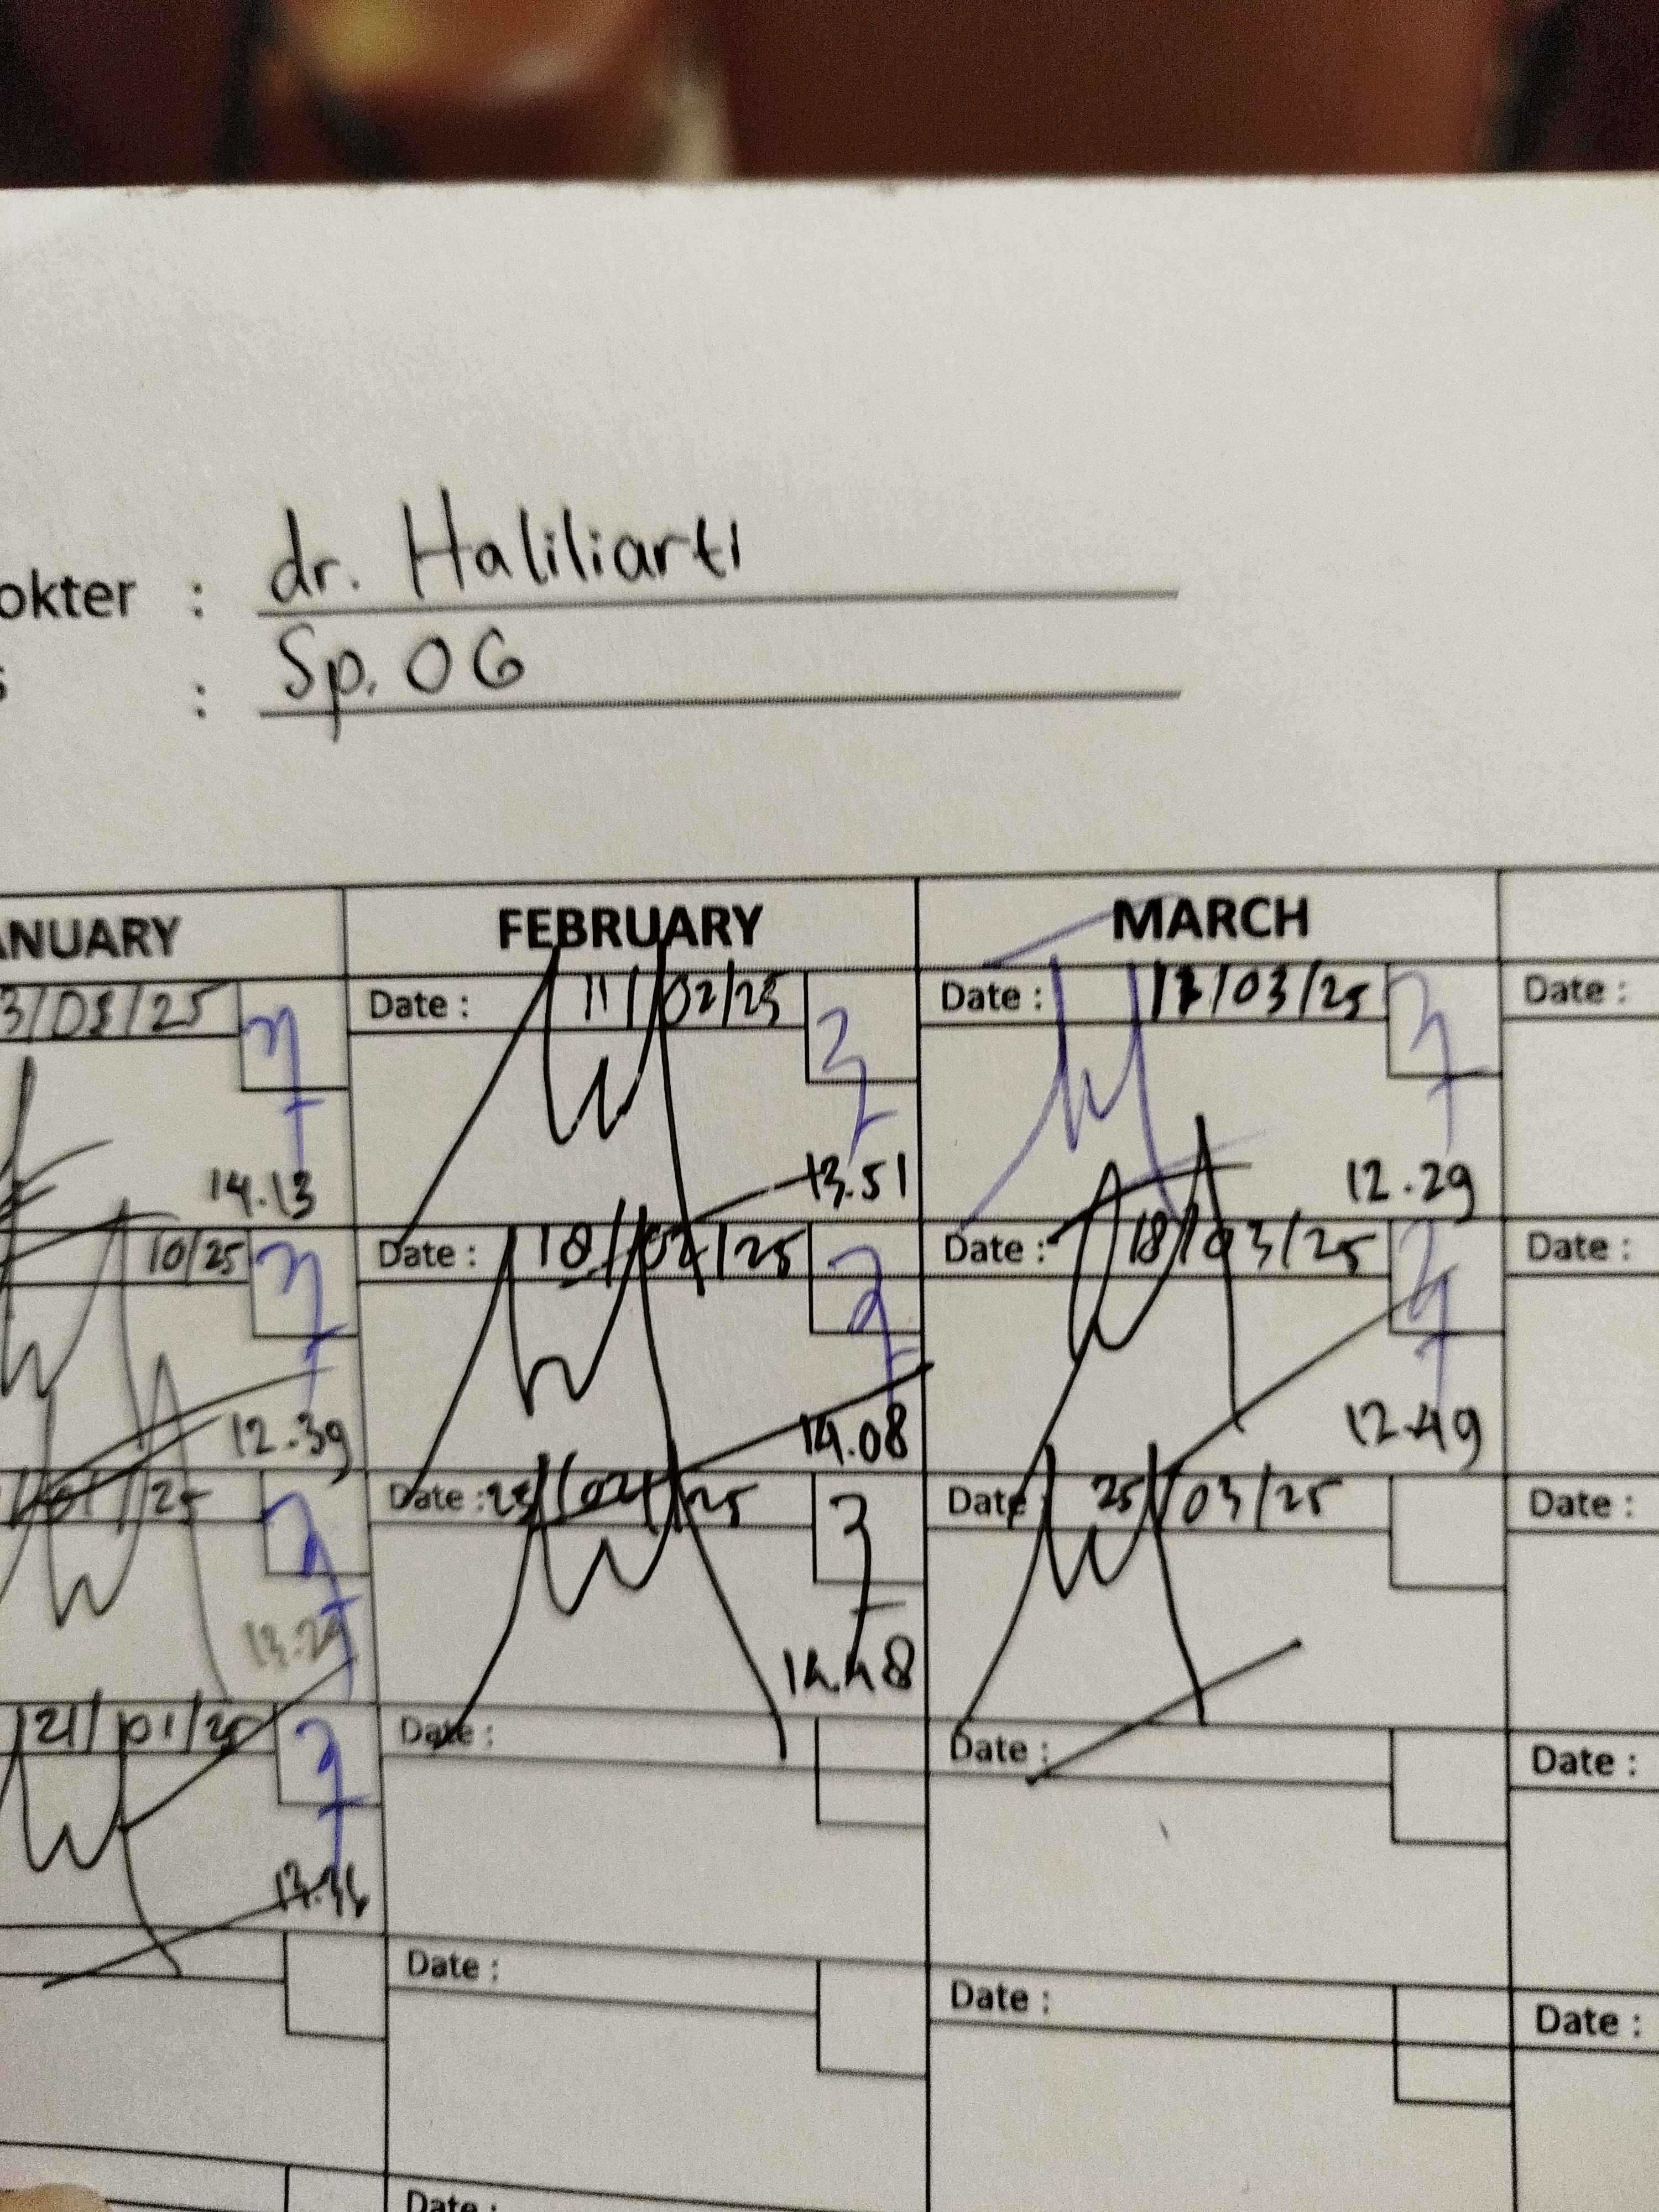 okter : dr. Haliliarti
: Sp. OG
ANUARY FEBRUARY MARCH
3/03/25 Date : 11/02/25 Date : 17/03/25 Date :
14.13 13.51 12.29
10/25 Date : 18/02/25 Date : 18/03/25 Date :
12.39 14.08 12.49
/25 Date : 25/02/25 Date : 25/03/25 Date :
14.48
21/01/25 Date : Date : Date :
Date : Date : Date :
Date :